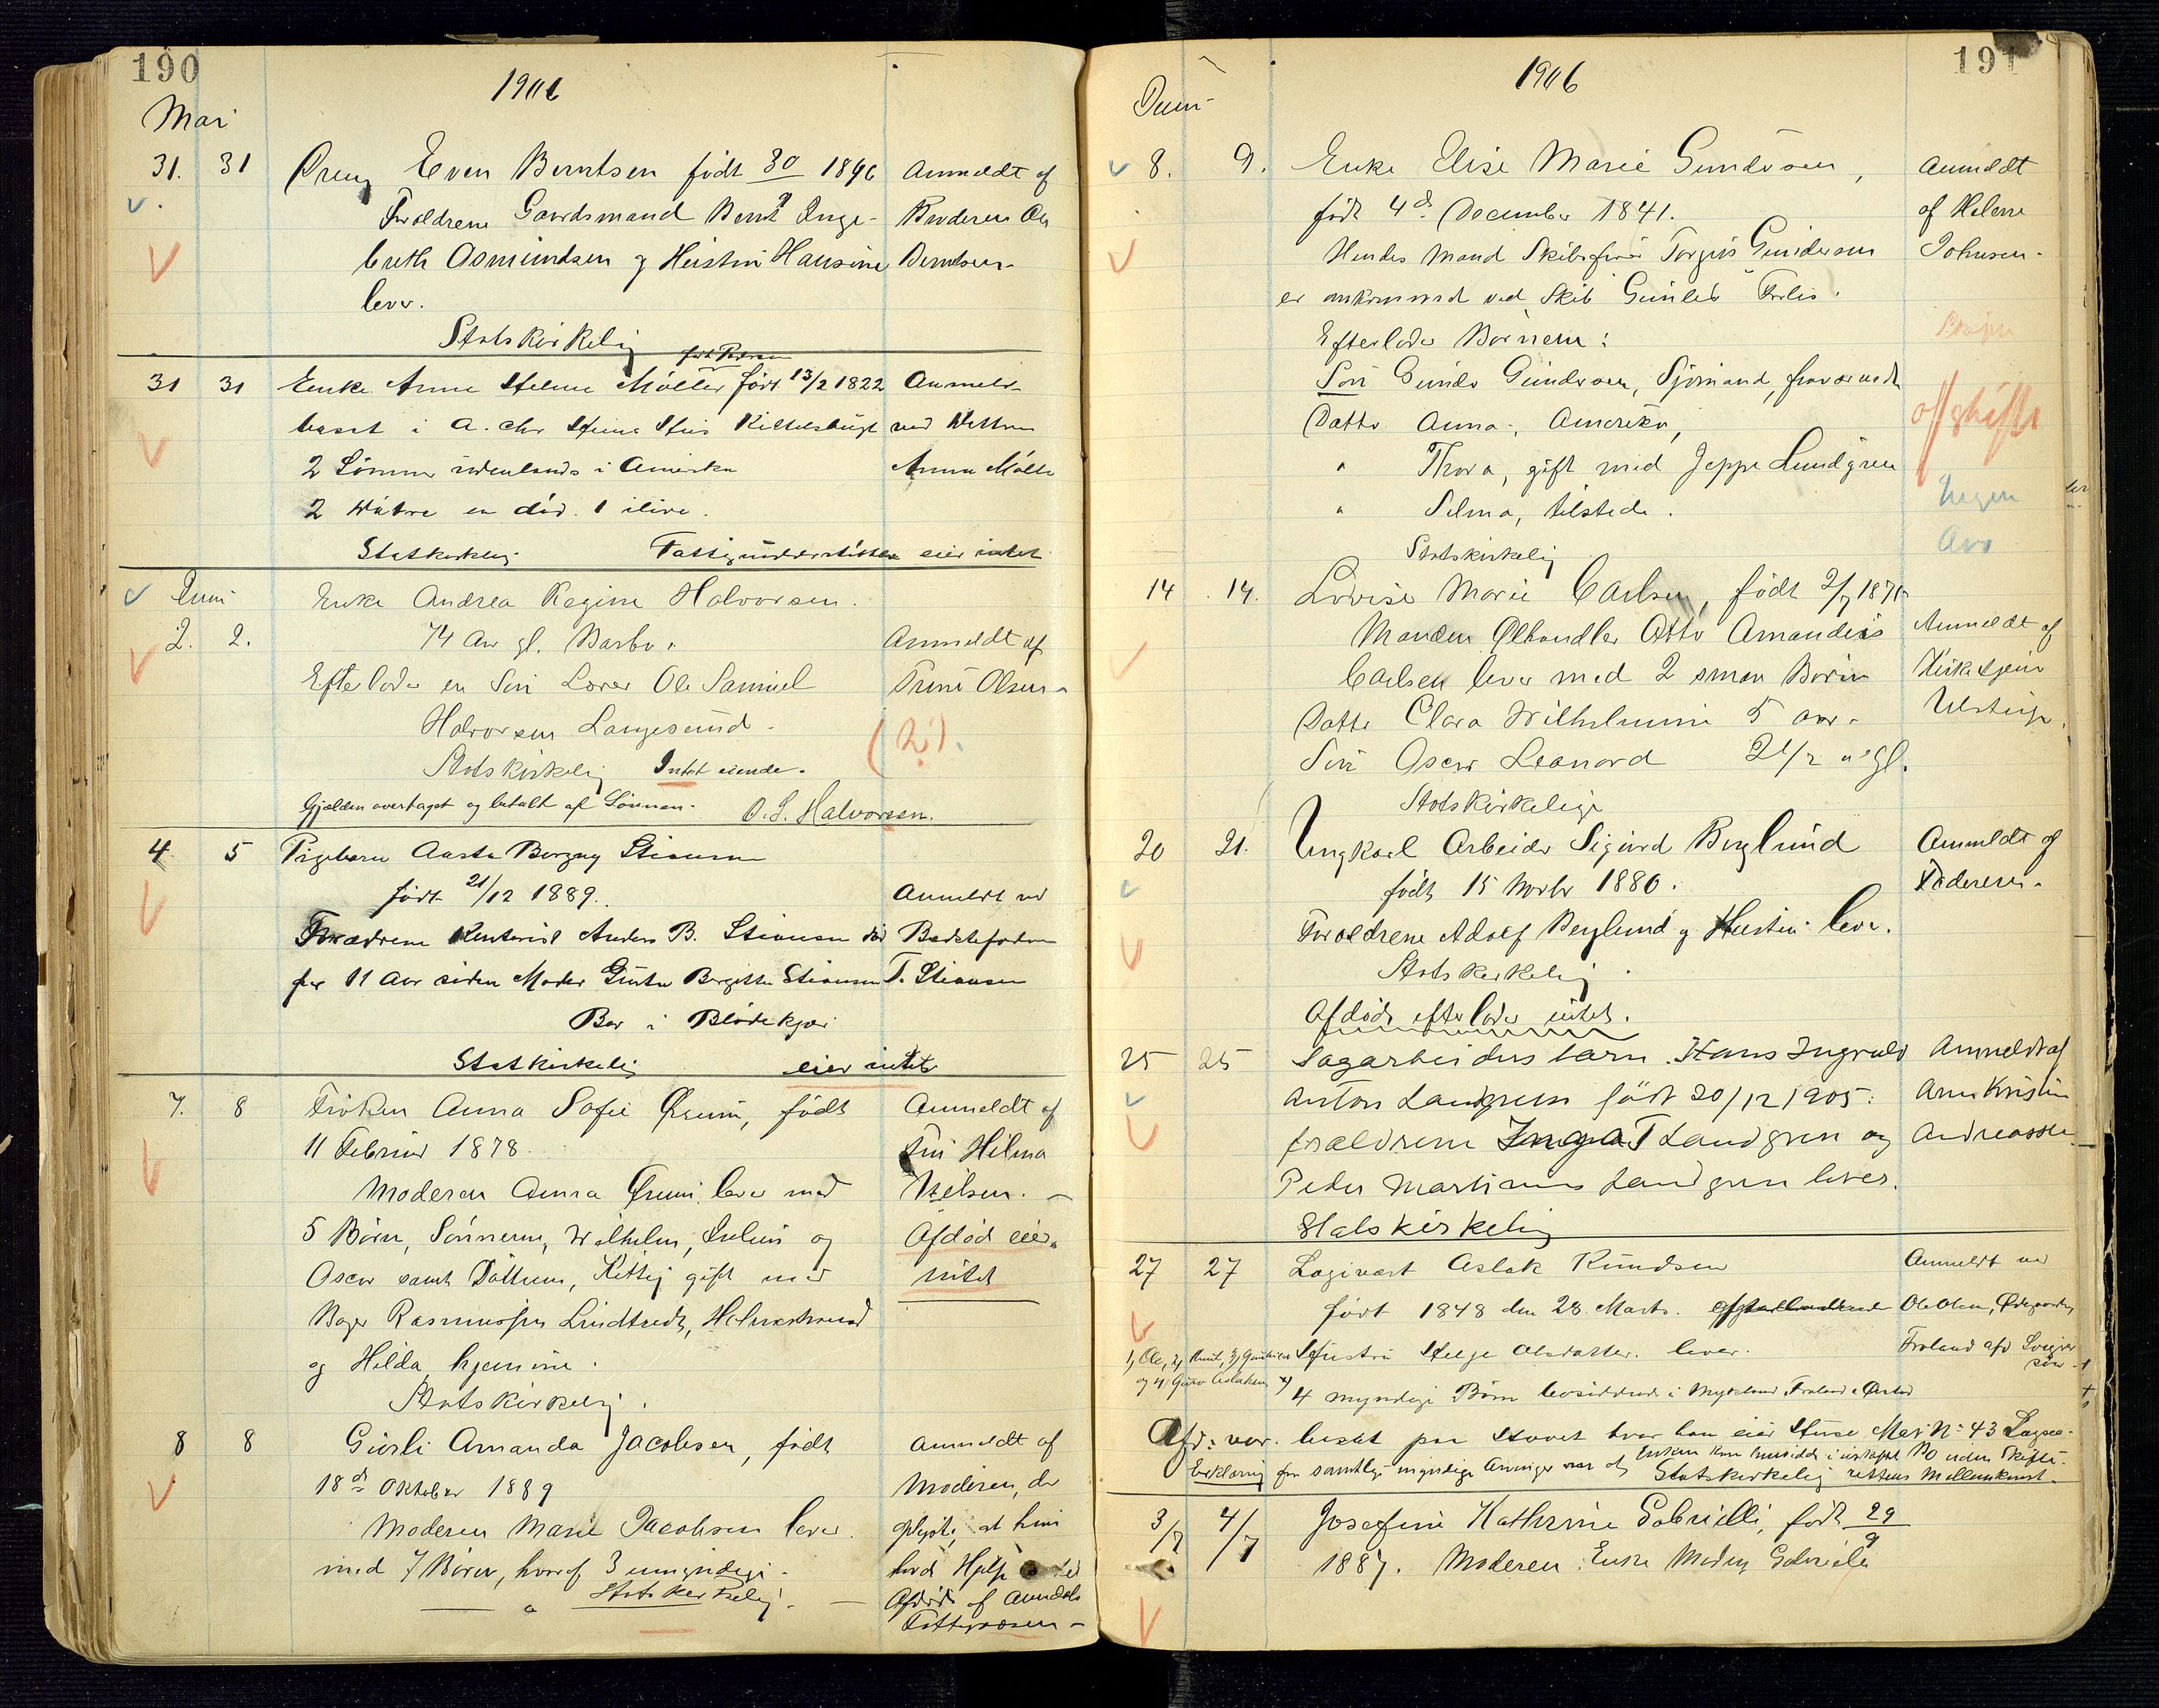 190
1906
Mai
31. 31 Dreng Even Berntsen født 30/9 1896 Anmeldt af
Forældrene Gaardsmand Bernt Inge- Broderen Ole
breth Osmundsen og Hustru Hansine Berntsen
lever.
Statskirkelig
31 31 Enke Anne Helene Møller født 13/2 1822 Anmeldt
født Pedersen
bosat i A. chr Hus Kittelsbugt ved Datteren
2 Sønner udenlands i Amerika Anna Møller
2 Døtre en død. 1 ilive.
Statskirkelig Fattigunderstøttet eier intet
Juni
2. 2. Enke Andrea Regine Halvorsen.
74 Aar gl. Barbo. Anmeldt af
Efterlader en Søn Lærer Ole Samuel Trine Olsen
Halvorsen Langesund. (2).
Statskirkelig Intet eiende.
Gjælden overtaget og betalt af Sønnen. O. S. Halvorsen.
4. 5 Pigebarn Aasta Borgny Stiansen
født 21/12 1889. Anmeldt ved
Forældrene Anders B. Stiansen død Bedstefaderen
for 11 Aar siden Moder Birgitte Stiansen T. Stiansen
Bor i Blødekjær
Statskirkelig eier intet
7. 8 Frøken Anna Sofie født Anmeldt af
11 Februar 1878. Fru Hilma
Moderen Anna lever med Nilsen.
5 Børn, Sønnerne, Wilhelm, Julius og Afdød eier
Oscar samt Døttrene, Kitty gift med intet
Bager Rasmussen Lindtvedt, Holmestrand
og Hilda hjemme.
Statskirkelig.
8 8 Gusli Amanda Jacobsen, født Anmeldt af
18de Oktober 1889 Moderen, der
Moderen Marie Jacobsen lever oplyste, at hun
med 7 Børn, hvoraf 3 umyndige. havde Hjælp
Statskirkelig. Afdøde af Arendals
Fattigvæsen
191
1906
Juni
8. 9. Enke Elise Marie Gundersen, Anmeldt
født 4de December 1841. af Helene
Hendes Mand Skibsfører Torgius Gundersen Johnsen.
er omkommet ved Skib Gunleb Forlis.
Efterlader Børnene:
Søn Gunder Gundersen, Sjømand, fraværende
Datter Anna, Amerika,
" Thora, gift med Jeppe Lundgren
" Selma, tilstede.
Statskirkelig
off skifte
Ingen
Arv
14 14. Lovise Marie Carlsen, født 2/7 1871
Manden Ølhandler Otto Amandus Anmeldt af
Carlsen lever med 2 smaa Børn Kirketjener
Datter Clara Wilhelmine 5 aar. Ulstrup.
Søn Oscar Leonard 2 1/2 " gl.
Statskirkelige
20 21. Ungkarl Arbeider Sigurd Berglund Anmeldt af
født 15 Novbr 1880. Faderen.
Forældrene Adolf Berglund og Hustru lever.
Statskirkelig.
Afdøde efterlader intet.
25 25 Sagarbeiders barn. Hans Ingvald Anmeldt af
Anton Landgren født 20/12 1905. Ane Kristine
forældrene Inga T Landgren og Andreassen
Peder Martinius Landgren lever.
Statskirkelig
27 27 Logivært Aslak Knudsen Anmeldt ved
født 1848 den 28 Marts. Ole Olsen, Ødegaarden
1, Ole, 2, Knut, 3, Gunhild Hustru Helje Olsdatter. lever. Froland afd Sviger
og 4, Guro Aslaksen x) søn
4 myndige Børn bosiddende i Mykland Froland &
Afd: var bosat paa Hovet hvor han eier Huse Mat No 43
Erklæring fra samtlige myndige Arvinger om at Enken kan hensidde i uskiftet Bo uden Skifte-
Statskirkelig rettens Mellemkomst
3/7 4/7 Josefine Kathrine Gabrielli, født 29/9
1887. Moderen: Enke Gabrielli